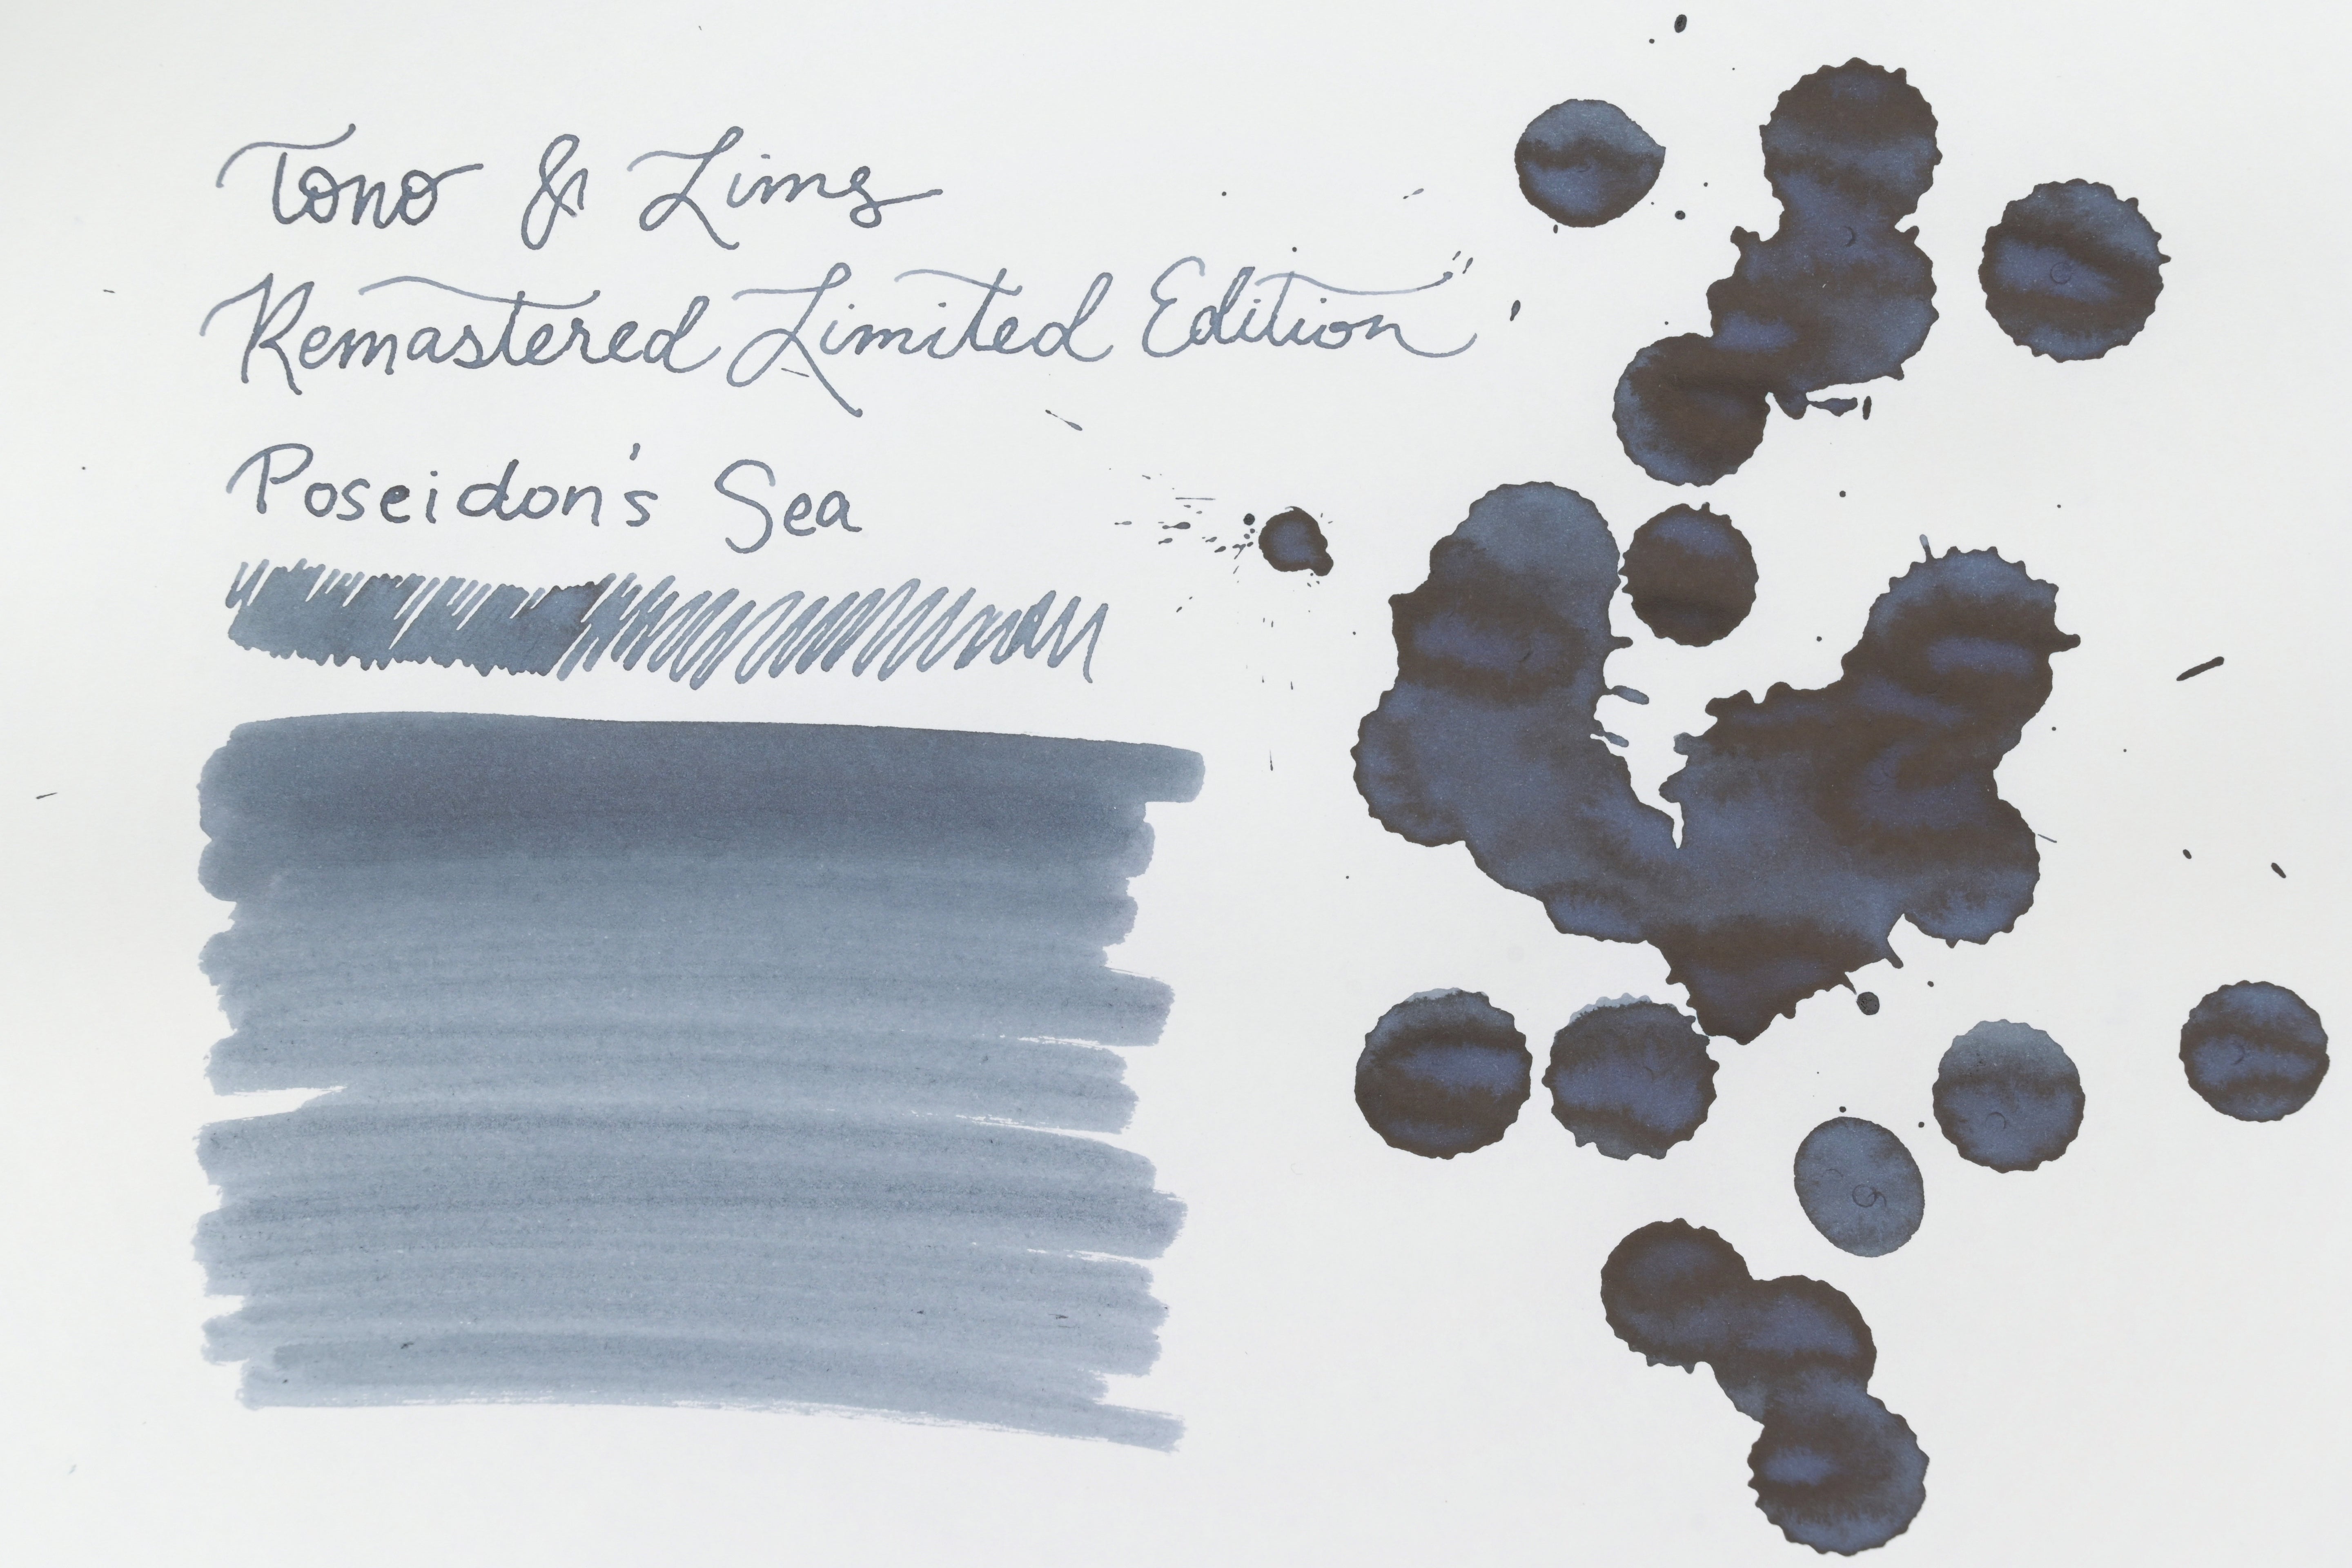 Tono & Lims
Remastered Limited Edition
Poseidon's Sea